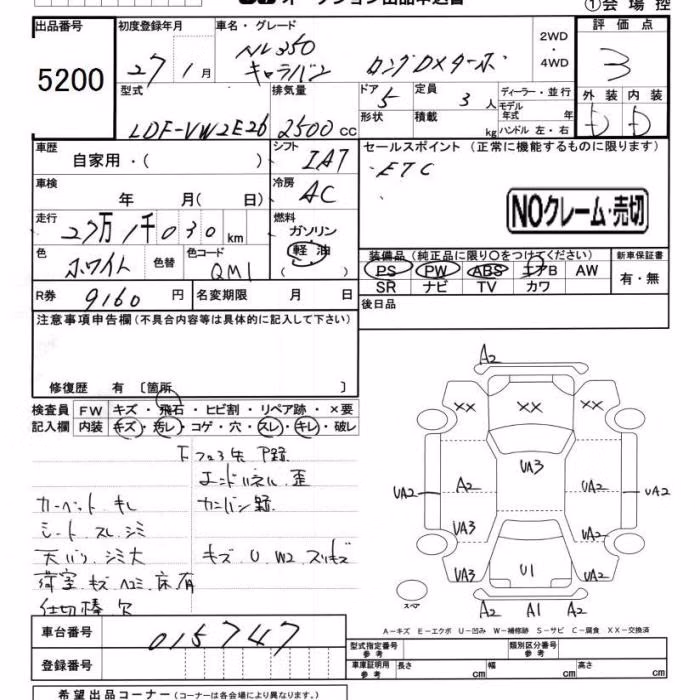 オークション出品申込書
①会場控
出品番号
5200
初度登録年月
27年1月
車名・グレード
NV350
キャラバン ロングDXターボ
2WD
・
4WD
評価点
3
外装 内装
D D
型式
LDF-VW2E26
排気量
2500cc
ドア
5
形状
定員
3人
積載
kg
ディーラー・並行
モデル年式 年
ハンドル 左・右
車歴
自家用・( )
シフト
IAT
セールスポイント (正常に機能するものに限ります)
・ETC
NOクレーム・売切
車検
年 月( 日)
冷房
AC
走行
27万1千030km
燃料
ガソリン
軽油
( )
色
ホワイト
色替
色コード
QM1
装備品 (純正品に限り○をつけてください)
PS PW ABS エアB AW
SR ナビ TV カワ
新車保証書
有・無
R券
9160円
名変期限 月 日
後日品
注意事項申告欄(不具合内容等は具体的に記入して下さい)
修復歴 有 〔箇所 〕
検査員
記入欄
FW キズ・飛石・ヒビ割・リペア跡・×要
内装 キズ・汚レ・コゲ・穴・スレ・キレ・破レ
エンドパネル 歪
カーペット キレ
シート スレ シミ
天バリ シミ大
キズ U W2 スリキズ
荷室 キズ ヘコミ 床有
仕切棒 欠
A2
XX XX XX
UA3
UA2 A2 UA2 UA2
UA3 UA2
UA3 U1 UA2
スペア
A2 A1 A2
A-キズ E-エクボ U-凹み W-補修跡 S-サビ C-腐食 XX-交換済
車台番号
015747
登録番号
型式指定番号
参考
類別区分番号
参考
車庫証明用
参考
長さ cm
幅 cm
高さ cm
希望出品コーナー (コーナーは各会場により異なります。)